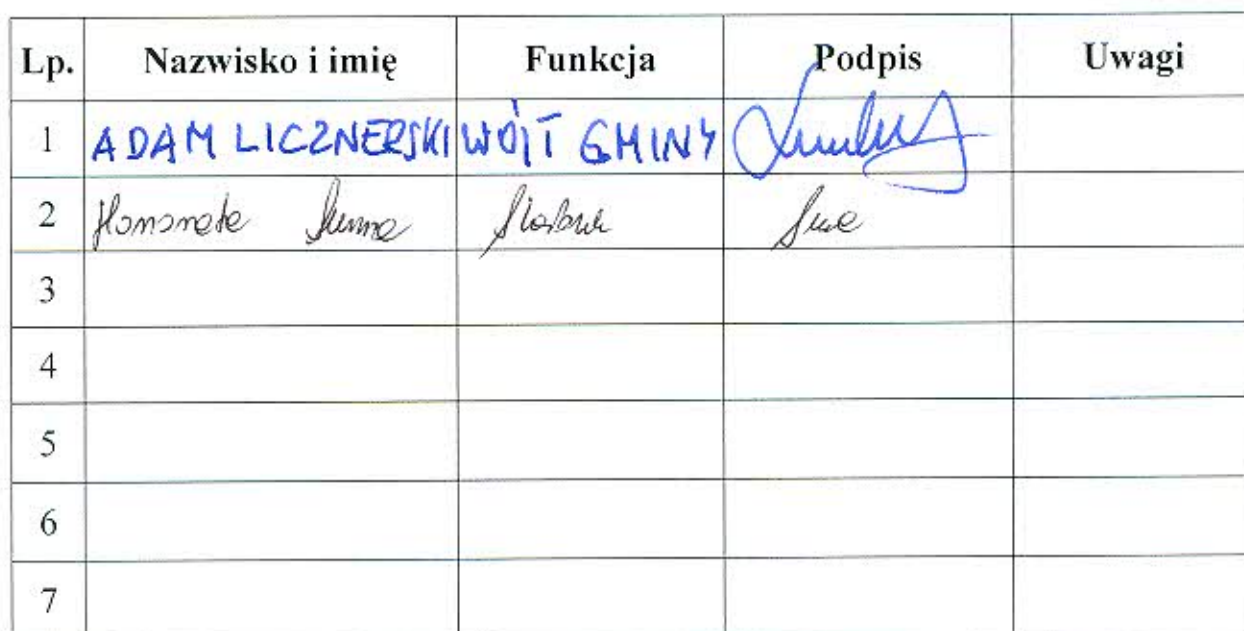 Lp. Nazwisko i imię Funkcja Podpis Uwagi
1 ADAM LICZNERSKI WÓJT GMINY
2 Honorata
3
4
5
6
7